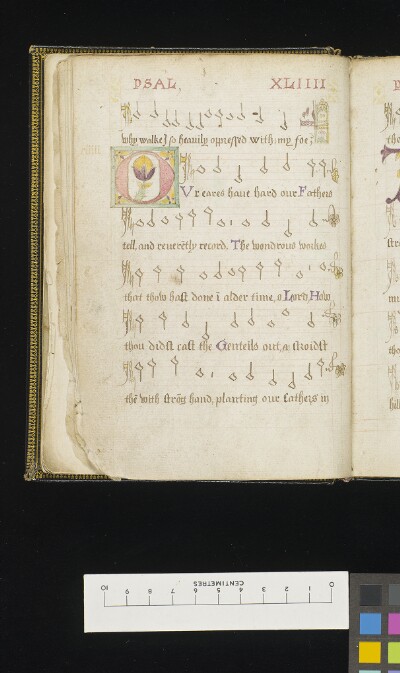 DSAL, XLIIII
why walke I so heavily opressed with my foe?
OVr eares haue hard our Fathers
tell, and reuerētly record. The wondrous workes
that thow hast done ī alder time, o Lord How
thou didst cast the Genteils out, & stroidst
thē with strōg hand, planting our fathers in
CENTIMETRES
10 9 8 7 6 5 4 3 2 1 0